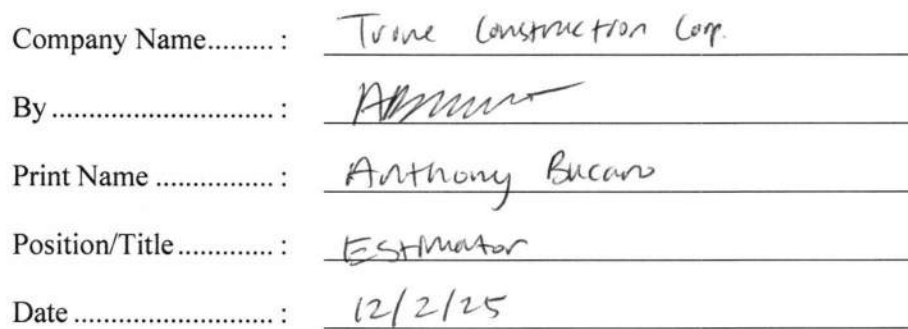 Company Name......... : Trine Construction Corp.
By ............................. :
Print Name ............... : Anthony Bucaro
Position/Title ............. : Estimator
Date .......................... : 12/2/25